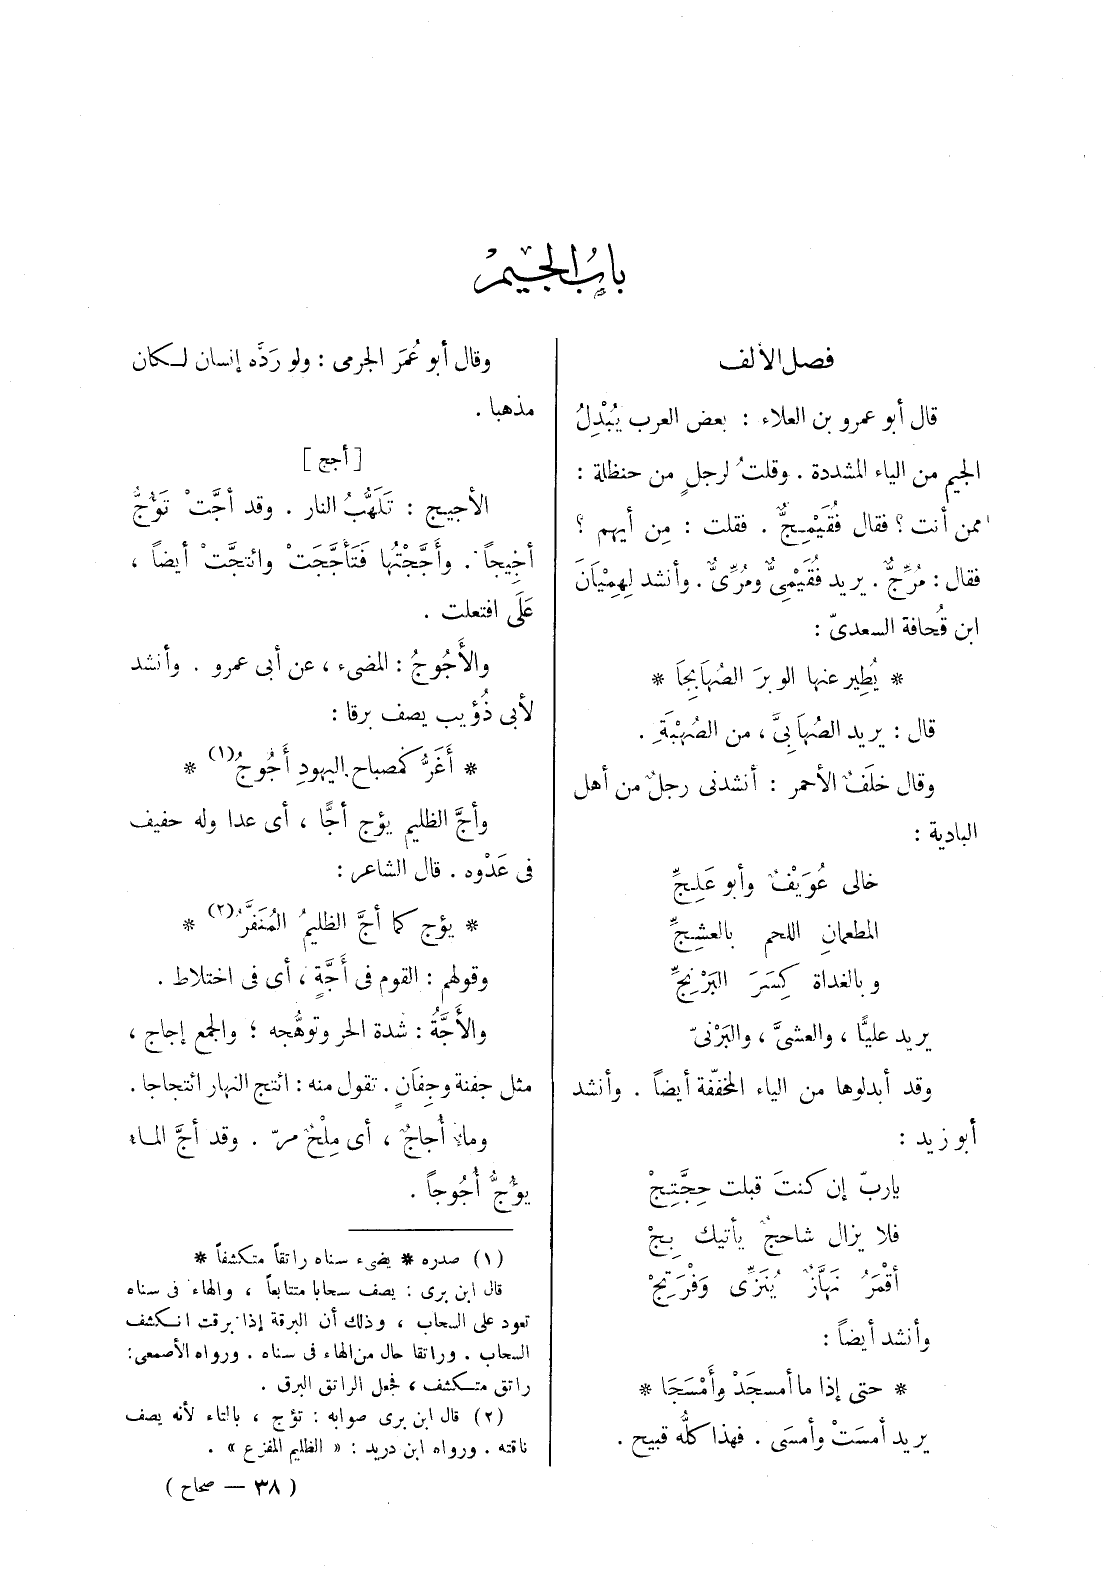 باب الجيم
فصل الألف
قال أبو عمرو بن العلاء : بعض العرب يُبْدِلُ
الجيم من الياء المشددة . وقلتُ لرجلٍ من حنظلة :
ممن أنت ؟ فقال فُقَيْمِجٌّ . فقلت : مِن أيهم ؟
فقال : مُرِّجٌّ . يريد فُقَيْمِىٌّ ومُرِّىٌّ . وأنشد لِهِمْيَانَ
ابن قُحافة السعدىّ :
* يُطِير عنها الوبرَ الصُهَابِجَا *
قال : يريد الصُهَابِىَّ ، من الصُهْبَةِ .
وقال خلَفٌ الأحمر : أنشدنى رجلٌ من أهل
البادية :
خالى عُوَيْفٌ وأبو عَلِجِّ
المطعمانِ اللحم بالعشِجِّ
وبالغداة كِسَرَ البَرْنِجِّ
يريد عليًّا ، والعشىَّ ، والبَرْنىّ
وقد أبدلوها من الياء المخفّفة أيضاً . وأنشد
أبو زيد :
يارب إن كنتَ قبلت حِجَّتِجْ
فلا يزال شاحجٌ يأتيك بِجْ
أقْمَرُ نَهَّازٌ يُنَزِّى وَفْرَتِجْ
وأنشد أيضاً :
* حتى إذا ما أمسجَدْ وأَمْسَجَا *
يريد أمسَتْ وأمسَى . فهذا كلُّه قبيح .
وقال أبو عُمَرَ الجرمى : ولو رَدَّه إنسان لكان
مذهبا .
[ أجج ]
الأجيج : تَلَهُّبُ النار . وقد أجَّتْ تَؤُجُّ
أجِيجاً . وأَجَّجْتُها فَتَأَجَّجَتْ وائتجَّتْ أيضاً ،
عَلَى افتعلت .
والأَجُوجُ : المضىء ، عن أبى عمرو . وأنشد
لأبى ذُؤيب يصف برقا :
* أَغَرُّ كمصباح اليهودِ أَجُوجُ(١) *
وأجَّ الظليم يؤج أجًّا ، أى عدا وله حفيف
فى عَدْوه . قال الشاعر :
* يؤج كما أجَّ الظليمُ المُنَفَّرُ(٢) *
وقولهم : القوم فى أَجَّةٍ ، أى فى اختلاط .
والأَجَّةُ : شدة الحر وتوهُّجه ؛ والجمع إجاج ،
مثل جفنة وجِفَانٍ . تقول منه : ائتج النهار ائتجاجا .
وماءٌ أُجاجٌ ، أى مِلْحٌ مرّ . وقد أجَّ الماء
يؤُجُّ أُجُوجاً .
(١) صدره * يضىء سناه راتقاً متكشفاً *
قال ابن برى : يصف سحابا متتابعاً ، والهاء فى سناه
تعود على السحاب ، وذلك أن البرقة إذا برقت انكشف
السحاب . وراتقا حال من الهاء فى سناه . ورواه الأصمعى :
راتق متكشف ، فجعل الراتق البرق .
(٢) قال ابن برى صوابه : تؤج ، بالتاء لأنه يصف
ناقته . ورواه ابن دريد : « الظليم المفزع » .
( ٣٨ — صحاح )